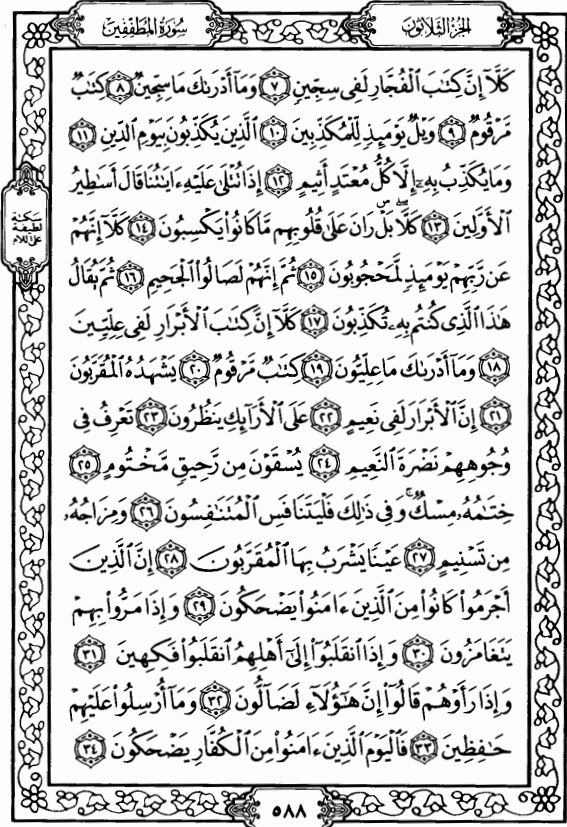 الجزء الثلاثون
سورة المطففين
كَلَّآ إِنَّ كِتَٰبَ ٱلْفُجَّارِ لَفِى سِجِّينٍ ﴿٧﴾ وَمَآ أَدْرَىٰكَ مَا سِجِّينٌ ﴿٨﴾ كِتَٰبٌ
مَّرْقُومٌ ﴿٩﴾ وَيْلٌ يَوْمَئِذٍ لِّلْمُكَذِّبِينَ ﴿١٠﴾ ٱلَّذِينَ يُكَذِّبُونَ بِيَوْمِ ٱلدِّينِ ﴿١١﴾
وَمَا يُكَذِّبُ بِهِۦٓ إِلَّا كُلُّ مُعْتَدٍ أَثِيمٍ ﴿١٢﴾ إِذَا تُتْلَىٰ عَلَيْهِ ءَايَٰتُنَا قَالَ أَسَٰطِيرُ
ٱلْأَوَّلِينَ ﴿١٣﴾ كَلَّا ۖ بَلْ ۜ رَانَ عَلَىٰ قُلُوبِهِم مَّا كَانُوا۟ يَكْسِبُونَ ﴿١٤﴾ كَلَّآ إِنَّهُمْ
سكتة
لطيفة
على اللام
عَن رَّبِّهِمْ يَوْمَئِذٍ لَّمَحْجُوبُونَ ﴿١٥﴾ ثُمَّ إِنَّهُمْ لَصَالُوا۟ ٱلْجَحِيمِ ﴿١٦﴾ ثُمَّ يُقَالُ
هَٰذَا ٱلَّذِى كُنتُم بِهِۦ تُكَذِّبُونَ ﴿١٧﴾ كَلَّآ إِنَّ كِتَٰبَ ٱلْأَبْرَارِ لَفِى عِلِّيِّينَ
﴿١٨﴾ وَمَآ أَدْرَىٰكَ مَا عِلِّيُّونَ ﴿١٩﴾ كِتَٰبٌ مَّرْقُومٌ ﴿٢٠﴾ يَشْهَدُهُ ٱلْمُقَرَّبُونَ
﴿٢١﴾ إِنَّ ٱلْأَبْرَارَ لَفِى نَعِيمٍ ﴿٢٢﴾ عَلَى ٱلْأَرَآئِكِ يَنظُرُونَ ﴿٢٣﴾ تَعْرِفُ فِى
وُجُوهِهِمْ نَضْرَةَ ٱلنَّعِيمِ ﴿٢٤﴾ يُسْقَوْنَ مِن رَّحِيقٍ مَّخْتُومٍ ﴿٢٥﴾
خِتَٰمُهُۥ مِسْكٌ ۚ وَفِى ذَٰلِكَ فَلْيَتَنَافَسِ ٱلْمُتَنَٰفِسُونَ ﴿٢٦﴾ وَمِزَاجُهُۥ
مِن تَسْنِيمٍ ﴿٢٧﴾ عَيْنًا يَشْرَبُ بِهَا ٱلْمُقَرَّبُونَ ﴿٢٨﴾ إِنَّ ٱلَّذِينَ
أَجْرَمُوا۟ كَانُوا۟ مِنَ ٱلَّذِينَ ءَامَنُوا۟ يَضْحَكُونَ ﴿٢٩﴾ وَإِذَا مَرُّوا۟ بِهِمْ
يَتَغَامَزُونَ ﴿٣٠﴾ وَإِذَا ٱنقَلَبُوٓا۟ إِلَىٰٓ أَهْلِهِمُ ٱنقَلَبُوا۟ فَكِهِينَ ﴿٣١﴾
وَإِذَا رَأَوْهُمْ قَالُوٓا۟ إِنَّ هَٰٓؤُلَآءِ لَضَآلُّونَ ﴿٣٢﴾ وَمَآ أُرْسِلُوا۟ عَلَيْهِمْ
حَٰفِظِينَ ﴿٣٣﴾ فَٱلْيَوْمَ ٱلَّذِينَ ءَامَنُوا۟ مِنَ ٱلْكُفَّارِ يَضْحَكُونَ ﴿٣٤﴾
٥٨٨